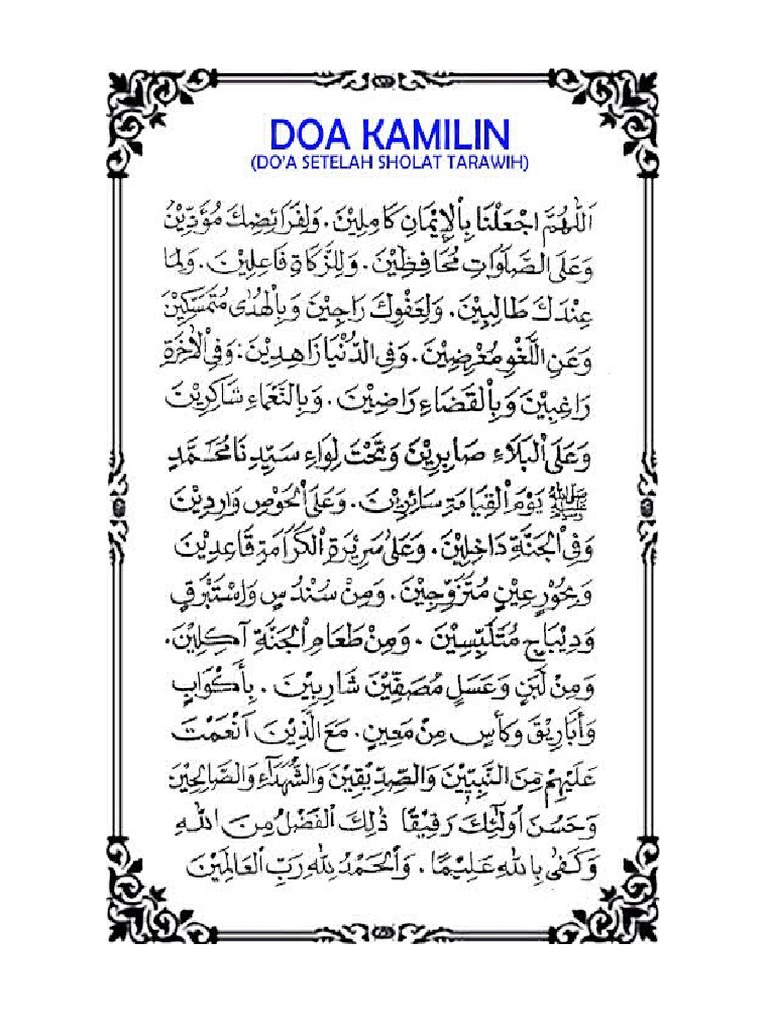 DOA KAMILIN
(DO'A SETELAH SHOLAT TARAWIH)
اَللّٰهُمَّ اجْعَلْنَا بِالْإِيْمَانِ كَامِلِيْنَ. وَلِفَرَائِضِكَ مُؤَدِّيْنَ
وَعَلَى الصَّلَوَاتِ مُحَافِظِيْنَ. وَلِلزَّكَاةِ فَاعِلِيْنَ. وَلِمَا
عِنْدَكَ طَالِبِيْنَ. وَلِعَفْوِكَ رَاجِيْنَ وَبِالْهُدٰى مُتَمَسِّكِيْنَ
وَعَنِ اللَّغْوِ مُعْرِضِيْنَ. وَفِى الدُّنْيَا زَاهِدِيْنَ: وَفِى الْاٰخِرَةِ
رَاغِبِيْنَ وَبِالْقَضَاءِ رَاضِيْنَ. وَبِالنَّعْمَاءِ شَاكِرِيْنَ
وَعَلَى الْبَلَاءِ صَابِرِيْنَ وَتَحْتَ لِوَاءِ سَيِّدِنَا مُحَمَّدٍ
ﷺ يَوْمَ الْقِيَامَةِ سَائِرِيْنَ. وَعَلَى الْحَوْضِ وَارِدِيْنَ
وَفِى الْجَنَّةِ دَاخِلِيْنَ. وَعَلٰى سَرِيْرَةِ الْكَرَامَةِ قَاعِدِيْنَ
وَبِحُوْرٍ عِيْنٍ مُتَزَوِّجِيْنَ. وَمِنْ سُنْدُسٍ وَاِسْتَبْرَقٍ
وَدِيْبَاجٍ مُتَلَبِّسِيْنَ. وَمِنْ طَعَامِ الْجَنَّةِ آكِلِيْنَ.
وَمِنْ لَبَنٍ وَعَسَلٍ مُصَفَّيْنَ شَارِبِيْنَ. بِأَكْوَابٍ
وَأَبَارِيْقَ وَكَأْسٍ مِنْ مَعِيْنٍ. مَعَ الَّذِيْنَ اَنْعَمْتَ
عَلَيْهِمْ مِنَ النَّبِيِّيْنَ وَالصِّدِّيْقِيْنَ وَالشُّهَدَآءِ وَالصَّالِحِيْنَ
وَحَسُنَ اُولٰئِكَ رَفِيْقًا ذٰلِكَ الْفَضْلُ مِنَ اللهِ
وَكَفٰى بِاللهِ عَلِيْمًا. وَالْحَمْدُ لِلّٰهِ رَبِّ الْعَالَمِيْنَ